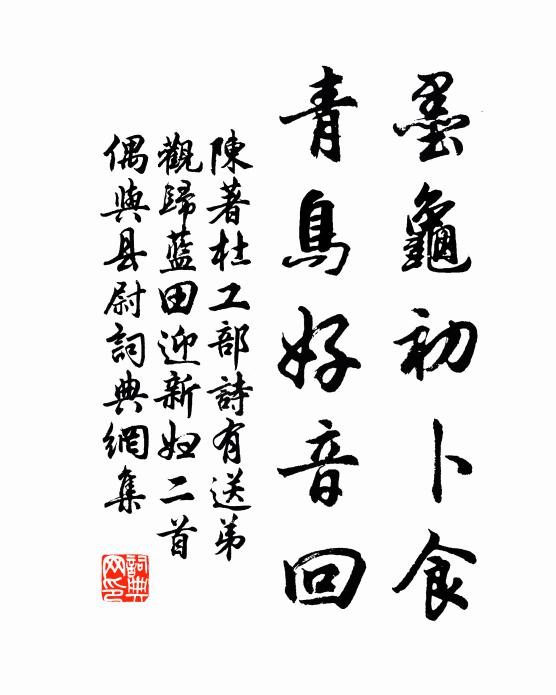 墨龜初卜食
青鳥好音回
陳著杜工部詩有送弟
觀歸藍田迎新妇二首
偶與县尉詞典網集
詞典网印